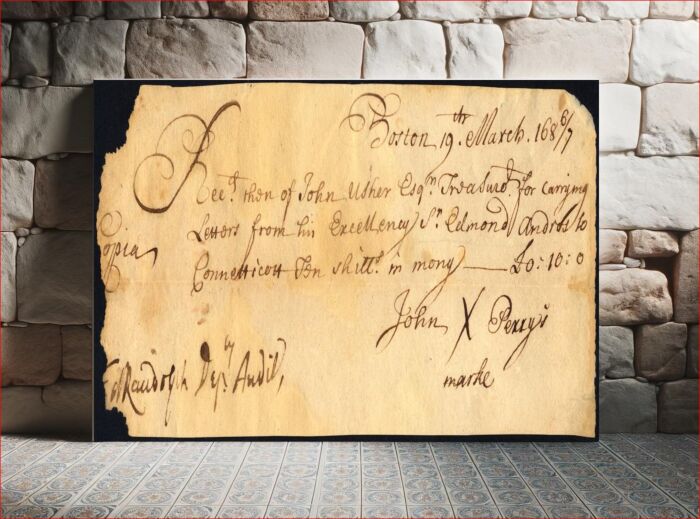 Boston 19th. March. 168 6/7
Rec.d then of John Usher Esq.r Treasur.r for Carrying
Letters from his Excellency S.r Edmond Andros to
Copia
Connetticott Ten shill.s in mony — £0: 10: 0
John X Perry's
marke
Ed Randolph Dep.ty Audit.